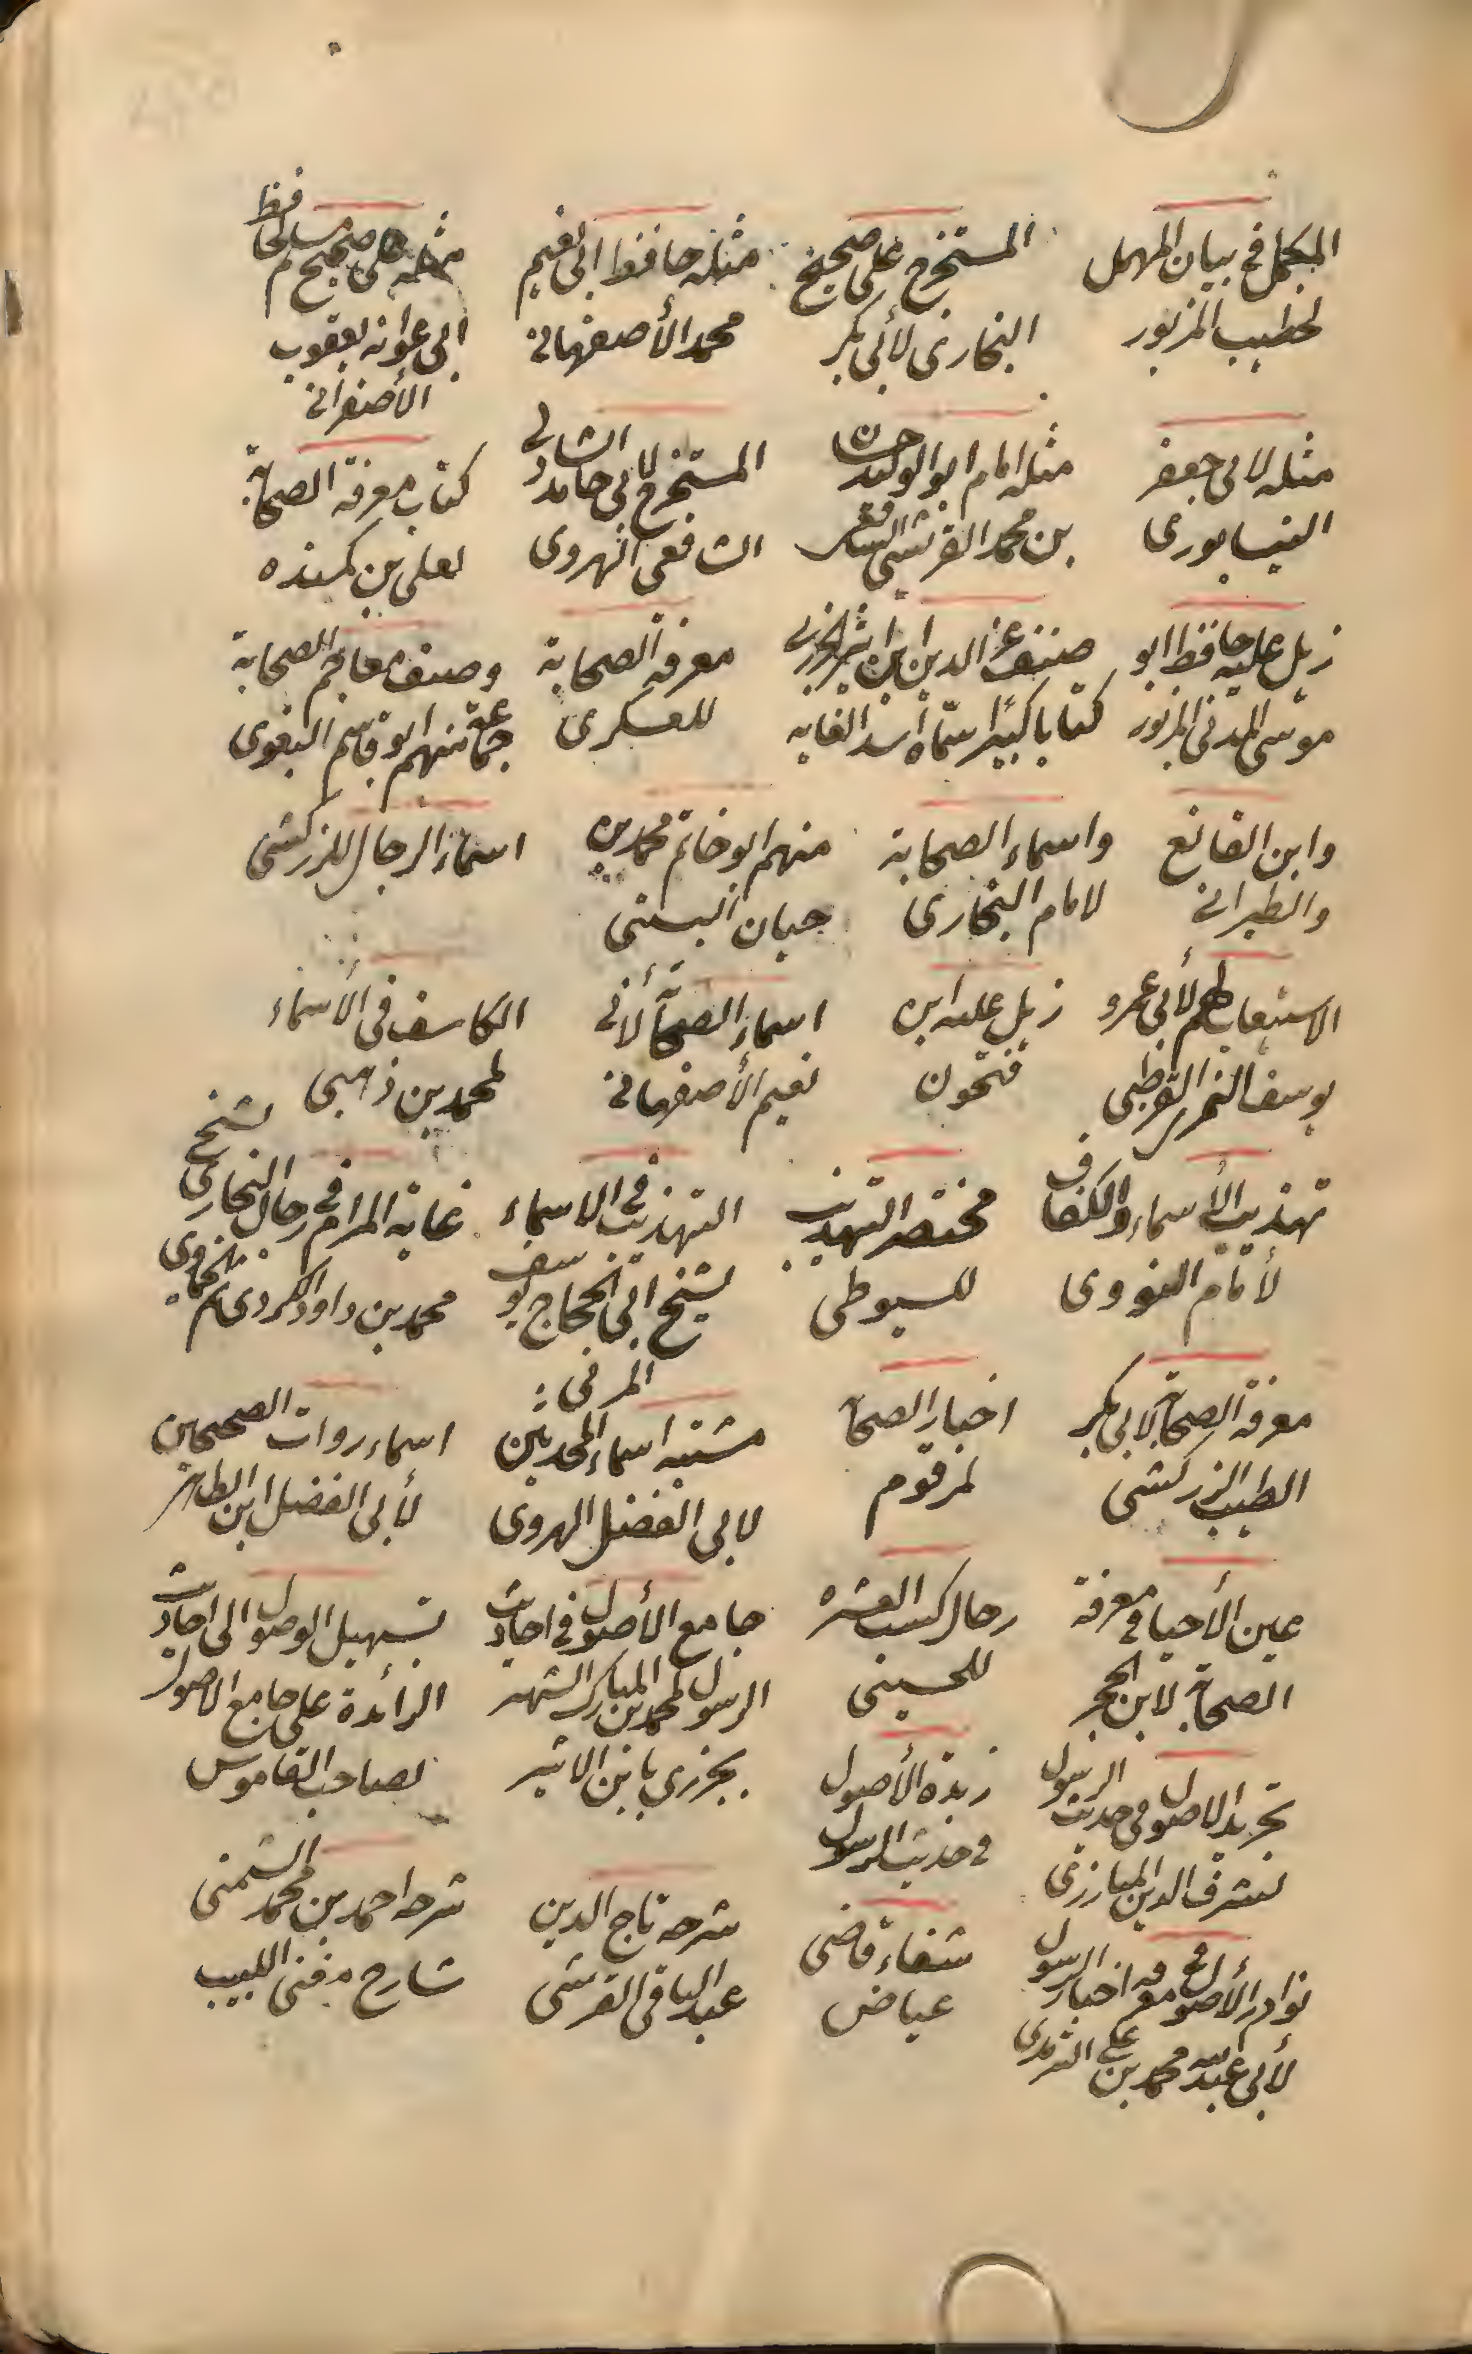 المكمل في بيان المهمل
لخطيب المزبور
المستخرج على صحيح
البخارى لأبى بكر
مثله حافظ ابى نعيم
محمد الأصفهانى
مثله على صحيح مسلم حافظ
ابى عوانه يعقوب
الأصفرانى
مثله لابى جعفر
النيسابورى
مثله امام ابو الوليد حسن
بن محمد القرشى الشافعى
المستخرج لابى حامد الشالى
الشافعى الهروى
كتاب معرفة الصحابة
لعلى بن
زيل عليه حافظ ابو
موسى المدنى المزبور
صنف عز الدين ابن اثير الجزرى
كتابا كبيرا سماه اسد الغابه
معرفة الصحابة
للعسكرى
وصنف معاجم الصحابة
جماعة منهم ابو قاسم البغوى
وابن القانع
والطبرانى
واسماء الصحابة
لامام البخارى
منهم ابو حاتم محمد بن
حبان البستى
اسماء الرجال للزركشى
الاستيعاب لأبى عمرو
يوسف النمر القرطبى
زيل عليه ابن
فتحون
اسماء الصحابة لأبى
نعيم الأصفهانى
الكاشف فى الأسماء
لمحمد بن ذهبى
تهذيب الأسماء والكفاف
لأمام النووى
مختصر التهذيب
للسيوطى
التهذيب فى الاسماء
لشيخ ابى الحجاج يوسف
المزنى
غاية المرام فى رجال البخارى لشيخ
محمد بن داود الكردى ثم الحموى
معرفة الصحابة لابى بكر
الطيب الزركشى
اخبار الصحابة
لمرقوم
مشتبه اسماء المحدثين
لابى الفضل الهروى
اسماء روات الصحيحين
لأبى الفضل ابن الطاهر
عين الأحيا فى معرفة
الصحابة لابن الحجر
رجال كتب العشره
للحسينى
جامع الأصول فى احاديث
الرسول لمحمد بن المبارك الشهير
بجزرى بابن الاثير
تسهيل الوصول الى احاديث
الزائدة على جامع الاصول
لصاحب القاموس
تجريد الاصول فى حديث الرسول
لشرف الدين المبارزى
زبدة الأصول
فى حديث الرسول
نوادر الأصول فى معرفة اخبار الرسول
لأبى عبد الله محمد بن على الترمدى
شفاء قاضى
عياض
شرحه تاج الدين
عبد الباقى القرشى
شرحه احمد بن محمد الشمنى
شارح مغنى اللبيب